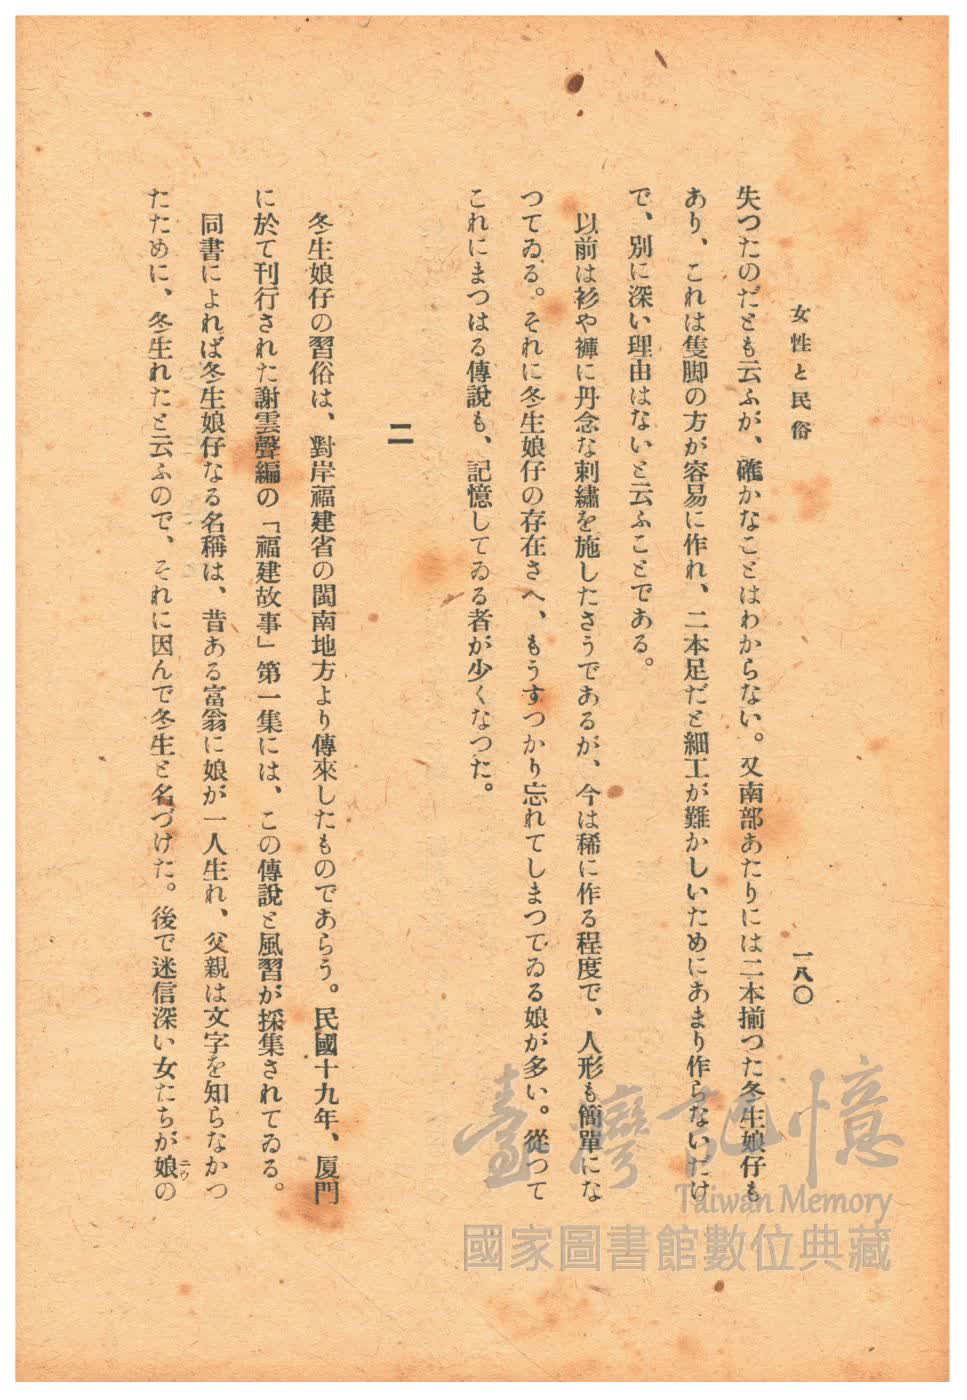 女性と民俗
一八〇
失つたのだとも云ふが、確かなことはわからない。又南部あたりには二本揃つた冬生娘仔も
あり、これは隻脚の方が容易に作れ、二本足だと細工が難かしいためにあまり作らないだけ
で、別に深い理由はないと云ふことである。
以前は衫や褲に丹念な刺繡を施したさうであるが、今は稀に作る程度で、人形も簡單にな
つてゐる。それに冬生娘仔の存在さへ、もうすつかり忘れてしまつてゐる娘が多い。從つて
これにまつはる傳說も、記憶してゐる者が少くなつた。
二
冬生娘仔の習俗は、對岸福建省の閩南地方より傳來したものであらう。民國十九年、厦門
に於て刊行された謝雲聲編の「福建故事」第一集には、この傳說と風習が採集されてゐる。
同書によれば冬生娘仔なる名稱は、昔ある富翁に娘が一人生れ、父親は文字を知らなかつ
たために、冬生れたと云ふので、それに因んで冬生と名づけた。後で迷信深い女たちが娘の
ニウ
臺灣記憶
Taiwan Memory
國家圖書館數位典藏